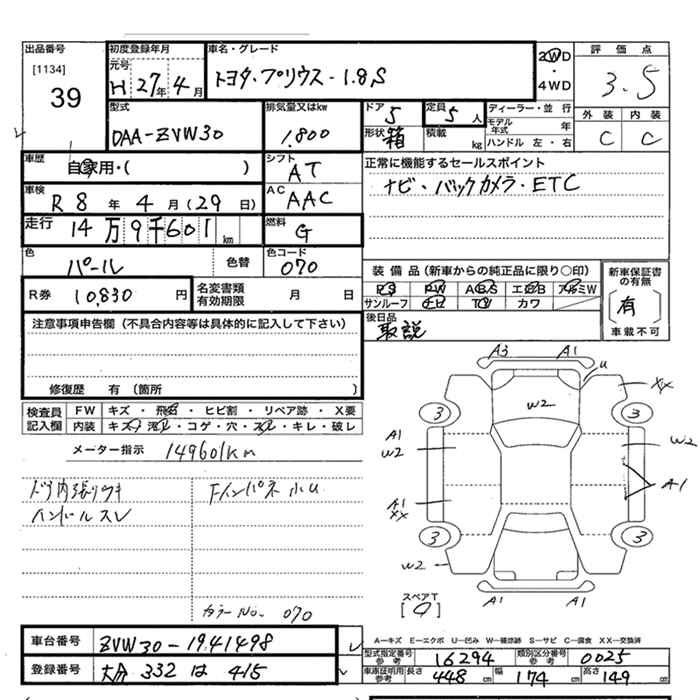 出品番号
[1134]
39
初度登録年月
元号
H 27年 4月
車名・グレード
トヨタ・プリウス-1.8S
2WD
・
4WD
評価点
3.5
型式
DAA-ZVW30
排気量又はkw
1.800
ドア 5
形状 箱
定員 5 人
積載 kg
ディーラー・並行
モデル年式 年
ハンドル 左・右
外装 内装
C C
車歴
自家用・( )
シフト
AT
正常に機能するセールスポイント
ナビ・バックカメラ・ETC
車検
R 8 年 4 月 (29 日)
AC
AAC
走行
14万9千601km
燃料
G
色
パール
色替
色コード
070
装備品(新車からの純正品に限り○印)
PS PW ABS エアB アルミW
サンルーフ ナビ TV カワ
新車保証書の有無
[有]
車載不可
R券 10,830 円
名変書類有効期限 月 日
後日品
取説
注意事項申告欄(不具合内容等は具体的に記入して下さい)
修復歴 有(箇所 )
検査員記入欄
FW キズ・飛石・ヒビ割・リペア跡・X要
内装 キズ・汚れ・コゲ・穴・スレ・キレ・破レ
メーター指示 149601km
ドア内張りウキ
ハンドルスレ
Fインパネ小U
カラーNo. 070
A3 A1
U
XX
W2
3 3
A1
W2
W2
A1
XX
A1
3 3
W2
スペアT
A1 A1
A-キズ E-エクボ U-凹み W-補修跡 S-サビ C-腐食 XX-交換済
車台番号 ZVW30-1941498
登録番号 大分 332 は 415
型式指定番号 参考 16294
類別区分番号 参考 0025
車庫証明用 参考 長さ 448 cm 幅 174 cm 高さ 149 cm